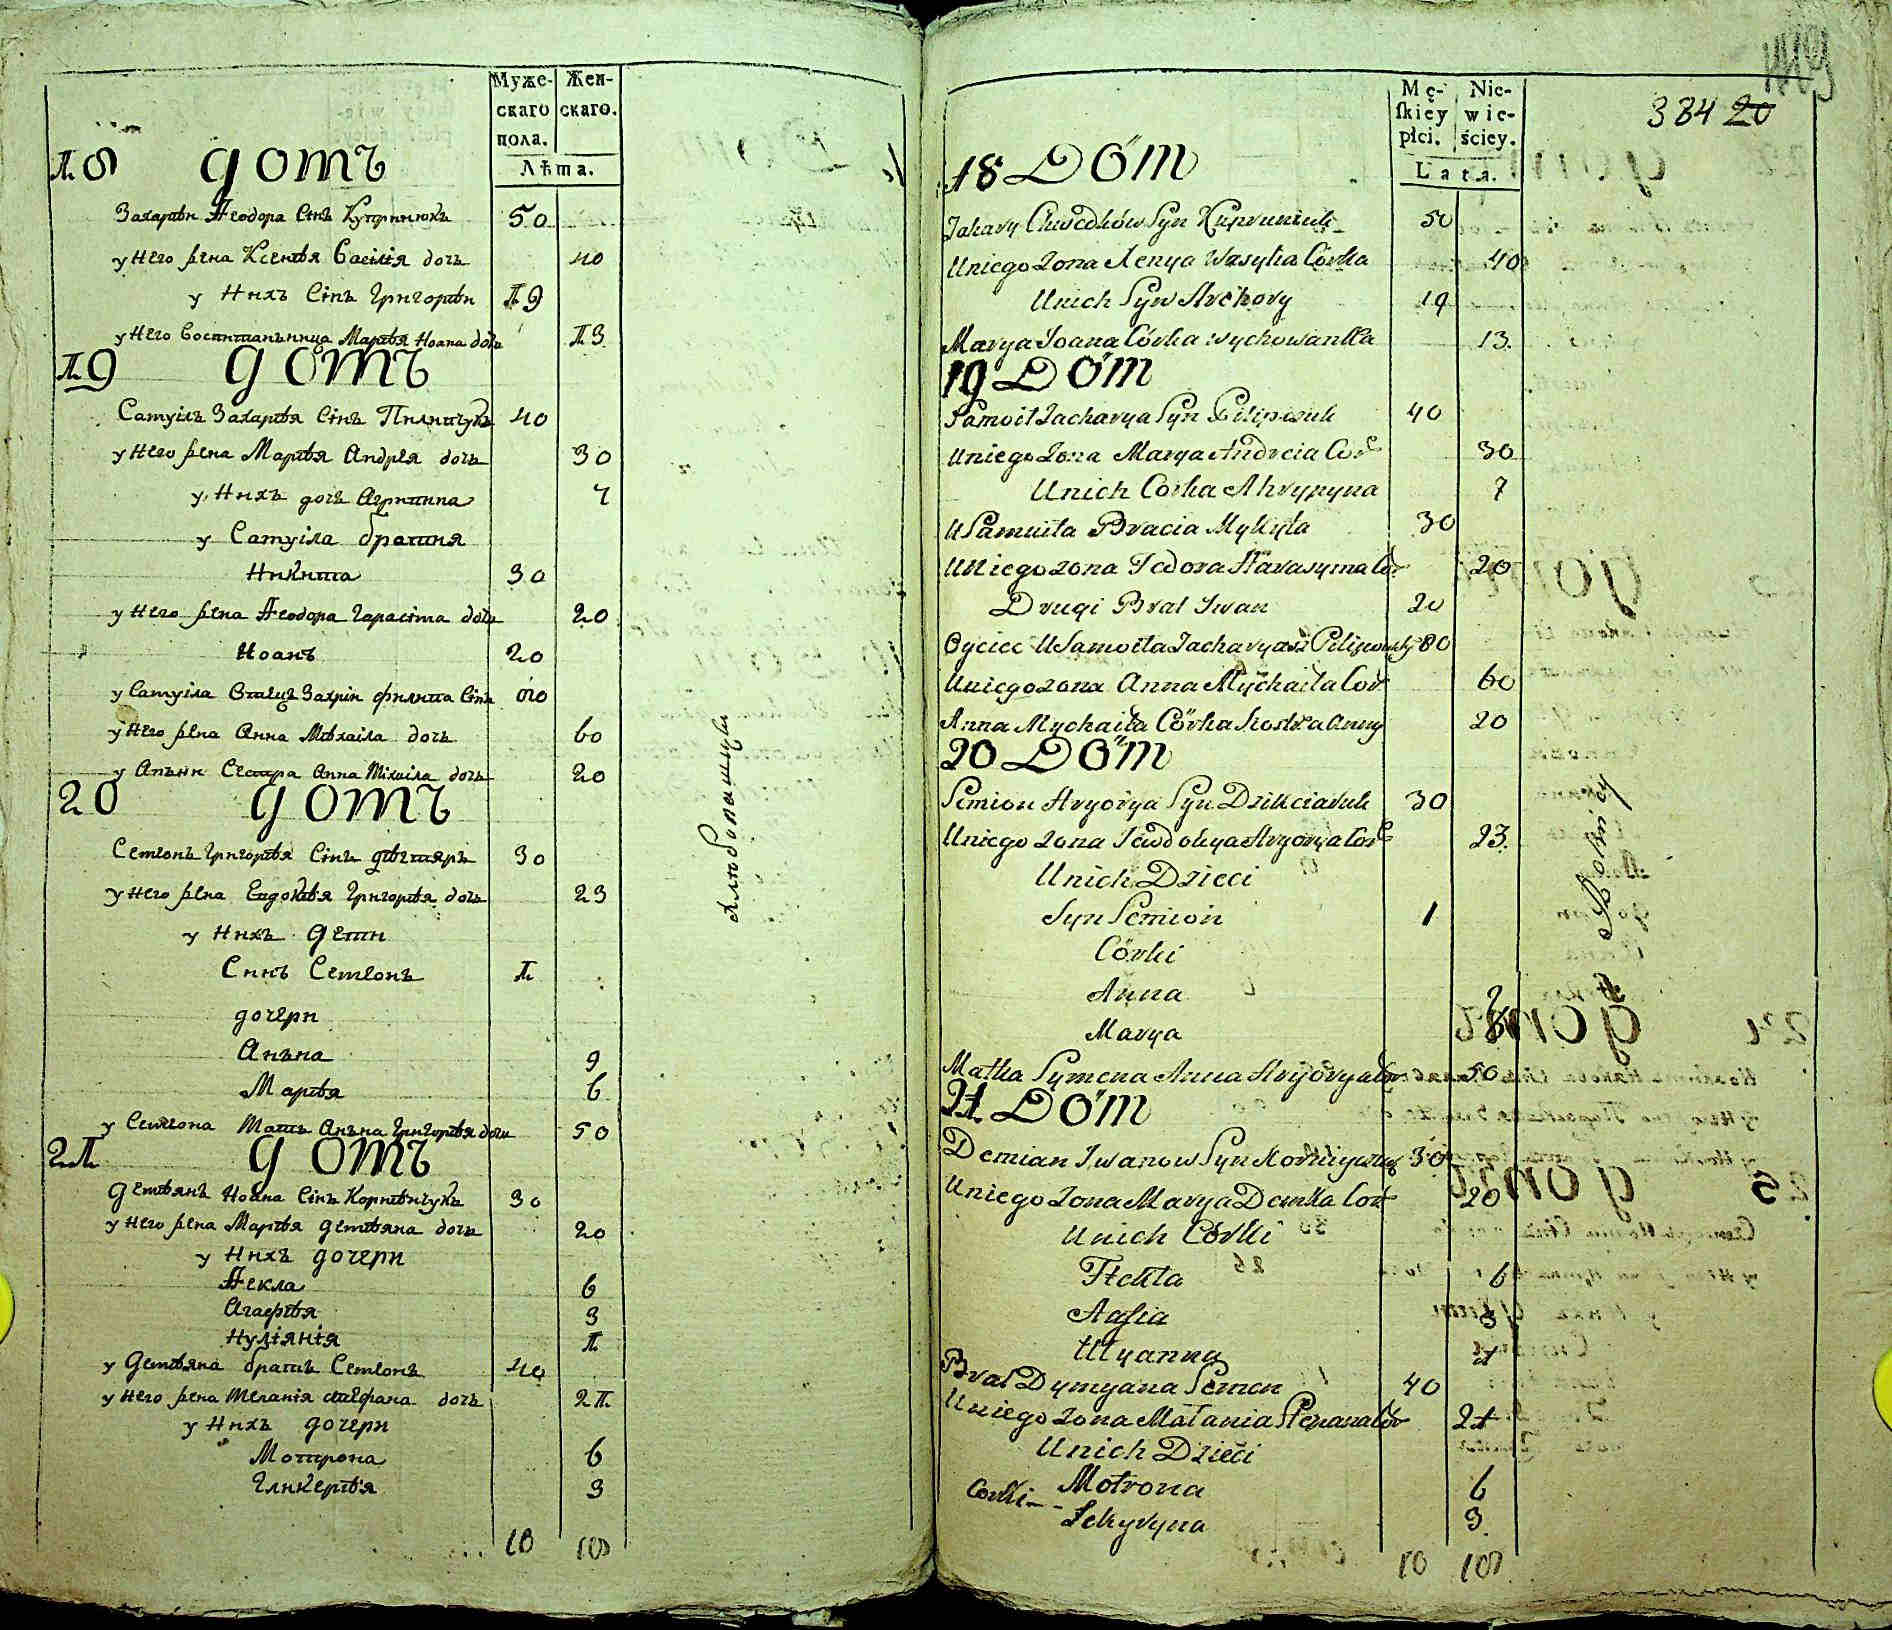 Муже- Жен-
скаго скаго.
пола.
Лѣта.
18 домъ
Захарѣи Ѳеодора Сінъ Купринюкъ 50
у Него жена Ксенѣя Василія дочь 40
у Нихъ Сінъ Григорѣи 19
у Него Воспитаньница Марѣя Иоана дочь 13
19 домъ
Самуілъ Захарѣя Сінъ Пилипчукъ 40
у Него жена Марѣя Андрея дочь 30
у Нихъ дочь Агрипина 7
у Самуіла братия
Никита 30
у Него жена Ѳеодора Гарасіма дочь 20
Иоанъ 20
у Самуіла Отецъ Захрін Филипа Сінъ 80
у Него жена Анна Мѣхаіла дочь 60
у Аньни Сестра Анна Міхаіла дочь 20
20 домъ
Семіонъ Григорѣя Сінъ дѣгтяръ 30
у Него жена Евдокѣя Григорѣя дочь 23
у Нихъ дети
Синъ Семіонъ 1
дочери
Аньна 9
Марѣя 6
у Семіона Мать Аньна Григорѣя дочь 50
21 домъ
Демѣянъ Иоана Сінъ Корнѣичукъ 30
у Него жена Марѣя демѣяна дочь 20
у Нихъ дочери
Ѳекла 6
Агафѣя 3
Иуліянія 1
у Демѣяна братъ Семіонъ 40
у Него жена Меланія Стефана дочь 21
у Нихъ дочери
Мотрона 6
Гликерѣя 3
10 18
Mę- Nie-
ſkiey wie-
płci. ściey.
Lata.
384 20
18 Dóm
Zahary Chwedków Syn Kupruniuk 50
Uniego Zona Xenya Wasyla Córka 40
Unich Syn Arehory 19
Marya Joana Córka wychowanka 13
19 Dóm
Samoił Zacharya Syn Pilipczuk 40
Uniego Zona Marya Andreia Cor 30
Unich Corka Ahrypyna 7
U Samuiła Bracia Mykyta 30
Uniego zona Fedora Harasyma Cor 20
Drugi Brat Iwan 20
Oyciec U Samoiła Zacharyasz Pilipowicz 80
Uniego zona Anna Mychaiła Cor 60
Anna Mychaiła Córka Siostra Anny 20
20 Dóm
Semion Hryorya Syn Dzikciaruk 30
Uniego Zona Jewdokya Hryorya Cor 23
Unich Dzieci
Syn Semion 1
Córki
Anna 9
Marya 6
Matka Symena Anna Hryorya Cor 50
21 Dóm
Demian Iwanow Syn Korniyczuk 30
Uniego Zona Marya Demka Cor 20
Unich Córki
Fekla 6
Aafia 3
Ulyanna 1
Brat Dymyana Semen 40
Uniego zona Małania Stepana Cór 21
Unich Dzieci
Corki Motrona 6
Łekyryna 3
10 18